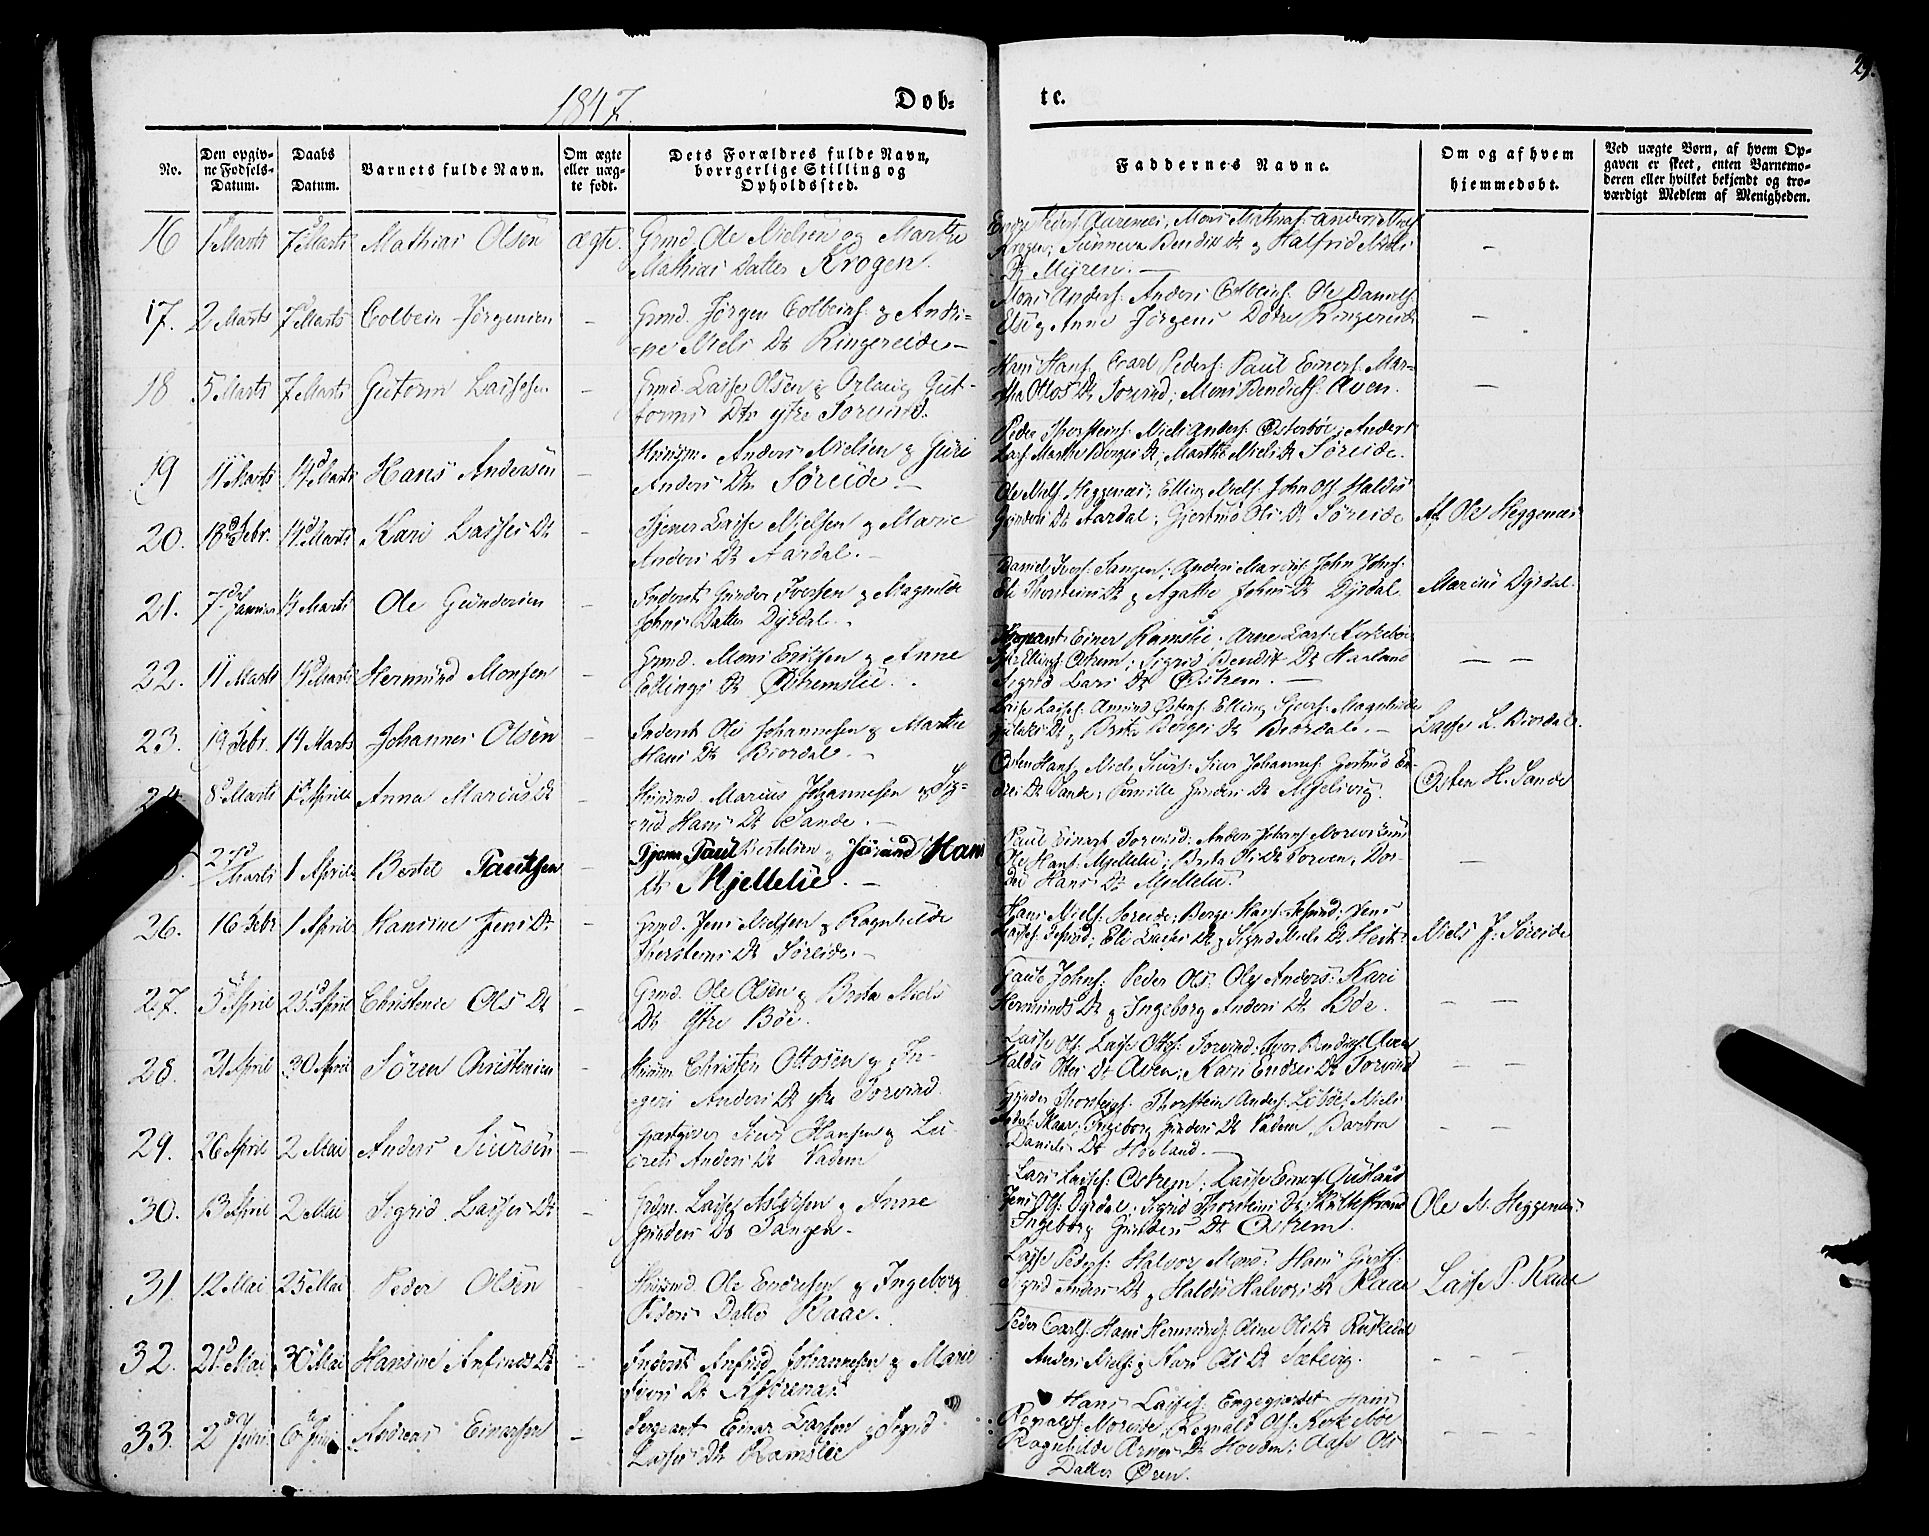 29.
1847.
Dob-
te.
No.
Den opgiv-
ne Fodsels-
Datum.
Daabs
Datum.
Barnets fulde Navn.
Om ægte
eller uæg-
te født.
Dets Forældres fulde Navn,
borrgerlige Stilling og
Opholdssted.
Faddernes Navne.
Om og af hvem
hjemmedøbt.
Ved uægte Born, af hvem Op-
gaven er skeet, enten Barnemo-
deren eller hvilket bekjendt og tro-
værdigt Medlem af Menigheden.
16 1 Marts 7 Marts Mathias Olsen ægte. Gmd. Ole Nielsen og Marthe
Mathias Datter Krogen.
Krogen; Sünneva Bendik Dt & Halfrid Niels
Dt Myren. —
17. 2 Marts 7 Marts Colbein Jørgensen - Gmd. Jørgen Colbeins: & Andri-
ne Niels Dt Ringereide -
Mons Anders: Anders Colbeins: Ole Daniels:
Else & Anne Jørgens Døtre Ringereide -
18 5 Marts 7 Marts Gutorm Lassesen - Gmd. Lasse Olsen & Orlaug Gut-
torms Dtr ytre Torvind.
Hans Hans: Carl Peders: Paul Einers: Mar-
tha Ottos Dt Torvind; Mons Bendiks: Aven. -
19 11 Marts 14 Marts Hans Andersen - Huusm. Anders Nielsen & Guri
Anders Dtr Søreide -
Peder Thorsteins: Niels Anders: Østerbøe; Anders
Lars: Marthe Berges Dt; Marthe Niels Dt Søreide.
20. 18 Febr. 14 Marts Kari Lasses Dt - Tjener Lasse Nielsen & Marie
Anders Dt Aardal. -
Ole Niels: Heggenæs; Elling Niels: John Ols: Haldis
Gunders Dt Aardal; Gjertrud Ols Dt Søreide Af Ole Heggenæs
21. 7 Januar 14 Marts Ole Gundersen - Inderst Gunder Iversen & Magnilde
Johns Datter Dyrdal.
Daniel Ivers: Tangen; Anders Marcus: John Johs:
Eli Thorsteins Dt & Agathe Johns Dt Dyrdal. Marcus Dyrdal.
22. 11 Marts 14 Marts Hermund Monsen - Gmd. Mons Eriksen & Anne
Ellings Dt Østremslie.
Sergeant Einer Ramslie; Arne Lars: Kirkebøe
Ellings: Østrem; Sigrid Bendik Dt Haaland
Sigrid Lars Dt Østrem. — — —
23. 19 Febr. 14 Marts Johannes Olsen - Inderst Ole Johannesen & Marthe
Hans Dt Biordal. -
Lasse Lasses: Amund Østens: Elling Sjurs: Magnhilde
Dt & Brite Berges Dt Biordal. - Lasse L. Biordal.
24. 8 Marts 1 April Anna Marcus Dt - Huusmd. Marius Johannesen & Sig-
rid Hans Dt Sande. -
Østen Hans: Niels Siurs: Siur Johannes: Gertrud En-
dres Dt Sande; Pernille Gunders Dt Mjelsvig. Østen H. Sande
Marts 1 April Bertel Paulsen - Tjener Paul Bertelsen & Jorund Hans
Dt Mjellelie. -
Paul Einars: Torvind: Anders Johans:
Ole Hans: Mjellelie; Brita Ols Dt Torven; Dor-
the Hans Dt Mjellelie. -
26. 16 Febr 1 April Hansine Jens Dt - Gmd. Jens Nielsen & Ragnhilde
Thorsteins Dt Søreide. -
Hans Niels: Søreide; Berge Hans: Tesund; Jens
Lasses: Tesund; Eli Lasses Dt & Sigrid Niels Dt Niels J. Søreide
27. 5 April 25 April Christense Ols Dt - Gmd. Ole Olsen & Brita Niels
Dt ytre Bøe.
Gaute Johns: Peder Ols: Ole Anders: Kari
Hermunds Dt & Ingeborg Anders Dt Bøe. — —
28. 21 April 30 April Søren Christensen - Huusm Christen Ottosen & In-
geri Anders Dt ytre Torvind.
Lasse Ols: Lasse Ottos: Torvind; Iver Bendiks: Aven
Haldis Ottos Dt Aven; Kari Endres Dt Torvind — —
29. 26 April 2 Mai Anders Siursen - Gæstgiver Siur Hansen & Lu-
crets Anders Dt Vadem
Gunder Thorsteins: Thorstein Anders: Niels
Anders: Skaar; Ingeborg Gunders Dt Vadem, Barbra
Daniels Dt Hovland. - — —
30. 13 April 2 Mai Sigrid Lasses Dt - Gdm. Lasse Aslaksen & Anne
Gunders Dt Tangen.
Lars Lasses: Østrem; Lasse Einers:
Jens Ols: Dyrdal; Sigrid Thorsteins Dt
Ingeborg Gunders Dt Østrem. Ole N. Heggenæs.
31. 12 Mai 25 Mai Peder Olsen - Huusmd Ole Endresen & Ingeborg
Peders Datter Raae.
Lasse Peders: Halvor Mons: Hans
Sigrid Anders Dt & Haldis Halvors Dt Raae Lasse P. Raae
32. 21 Mai 30 Mai Hansine Anfinds Dt - Inderst Anfind Johannesen & Marie
Ivers Dt
Peder Carls: Hans Hermunds: Oline Ols Dt
Anders Niels: & Kari Ols Dt Sætevig. — — —
33. 2 Juni 6 Juni Andreas Einersen - Sergeant Einar Larsen & Sigrid
Lasses Dt Ramslie
Hans Lasses: Engegjordet Hans
Ragnalds: Moreide; Ragnald Ols: Kirkebøe
Ragnhilde Arnes Dt Hovden; Aase Ols
Datter Øren. — — —